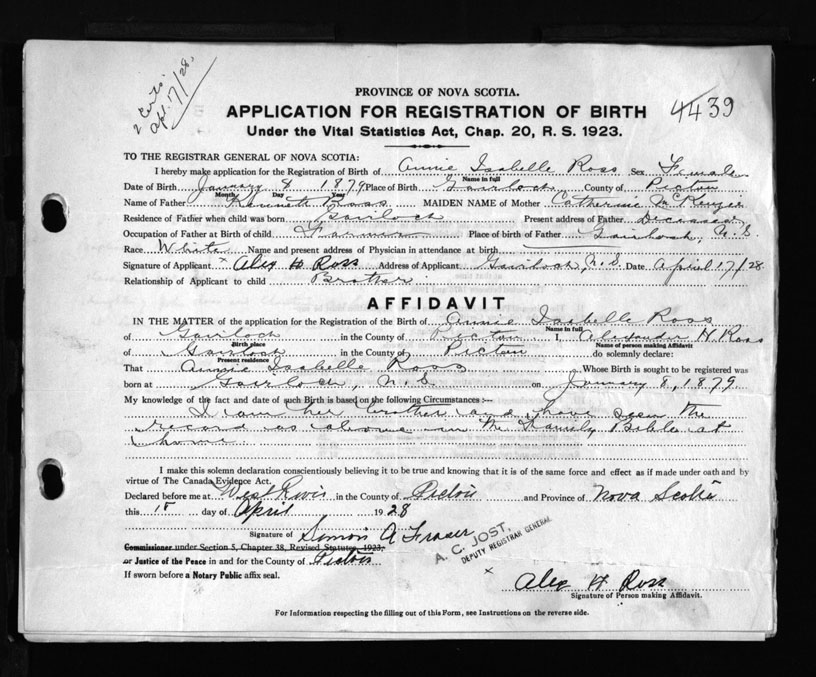 2 Certs.
Apl. 17/28.
PROVINCE OF NOVA SCOTIA.
APPLICATION FOR REGISTRATION OF BIRTH
4439
Under the Vital Statistics Act, Chap. 20, R. S. 1923.
TO THE REGISTRAR GENERAL OF NOVA SCOTIA:
I hereby make application for the Registration of Birth of Annie Isabelle Ross Sex Female
Name in full
Date of Birth January 8 1879 Place of Birth Gairloch County of Pictou
Month Day Year
Name of Father Kenneth Ross MAIDEN NAME of Mother Catherine McKenzie
Residence of Father when child was born Gairloch Present address of Father Deceased
Occupation of Father at Birth of child Farmer Place of birth of Father Gairloch, N.S
Race White Name and present address of Physician in attendance at birth
Signature of Applicant Alex H Ross Address of Applicant Gairloch, N.S. Date April 17/28
Relationship of Applicant to child Brother
AFFIDAVIT
IN THE MATTER of the application for the Registration of the Birth of Annie Isabelle Ross
Name in full
of Gairloch in the County of Pictou I, Alexander H. Ross
Birth place Name of person making Affidavit
of Gairloch in the County of Pictou do solemnly declare:
Present residence
That Annie Isabelle Ross Whose Birth is sought to be registered was
born at Gairloch, N.S on January 8, 1879
My knowledge of the fact and date of such Birth is based on the following Circumstances :—
I am her brother and have seen the
record as above in the Family Bible at
home
I make this solemn declaration conscientiously believing it to be true and knowing that it is of the same force and effect as if made under oath and by
virtue of The Canada Evidence Act.
Declared before me at West River in the County of Pictou and Province of Nova Scotia
this 18 day of April 1928
Signature of Simon A Fraser
A. C. JOST,
DEPUTY REGISTRAR GENERAL
Commissioner under Section 5, Chapter 38, Revised Statutes, 1923,
or Justice of the Peace in and for the County of Pictou
If sworn before a Notary Public affix seal.
x Alex H Ross
Signature of Person making Affidavit.
For Information respecting the filling out of this Form, see Instructions on the reverse side.